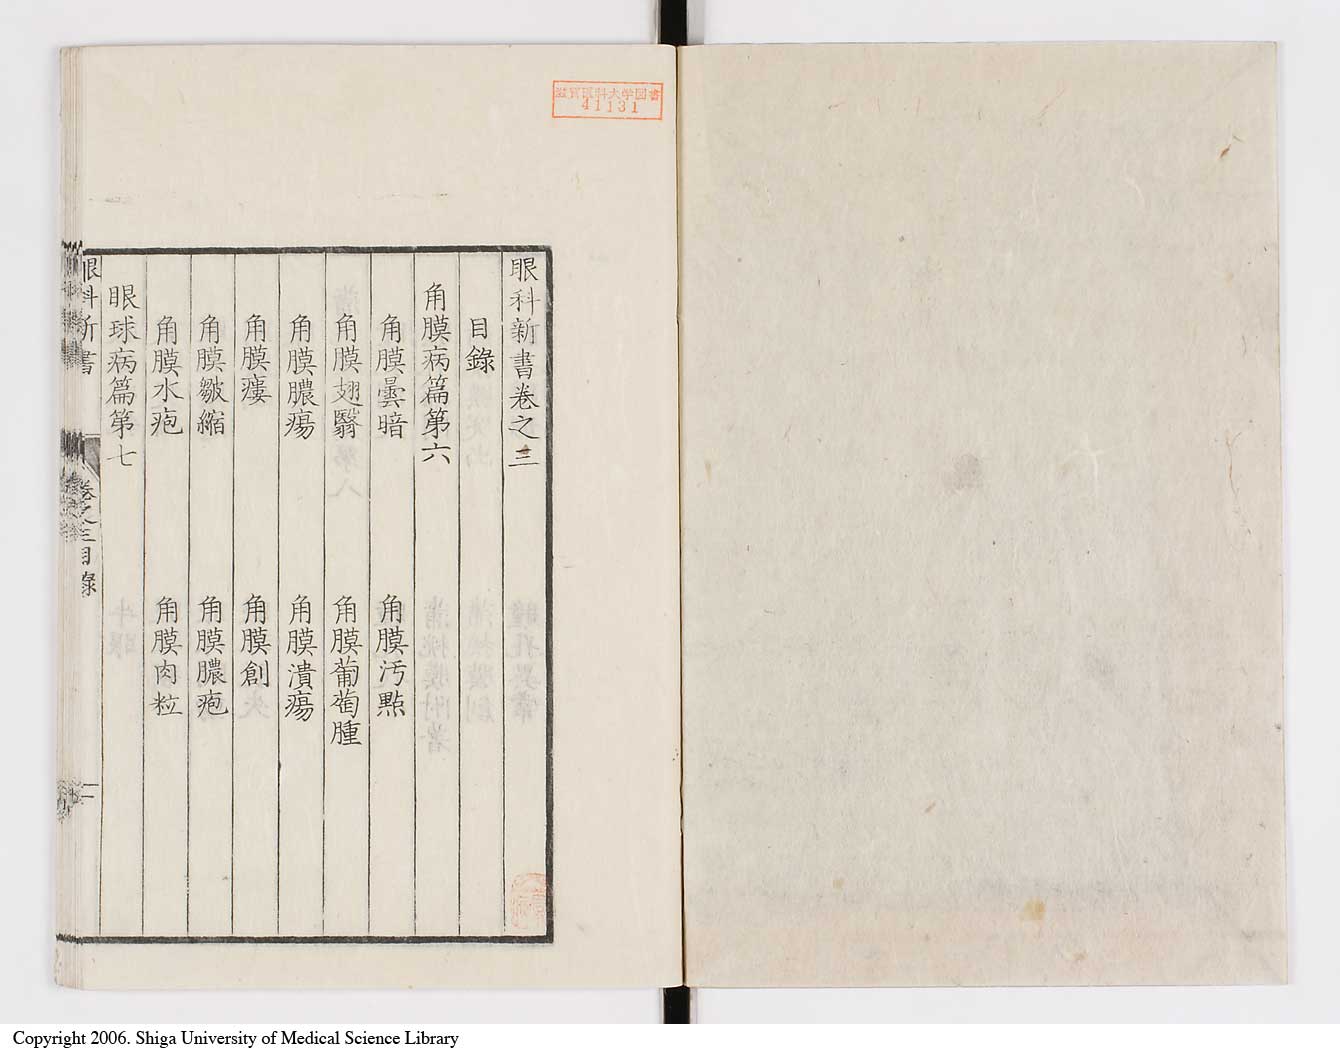 滋賀医科大学図書
41131
眼科新書巻之三
目錄
角膜病篇第六
角膜曇暗 角膜汚㸃
角膜翅翳 角膜葡萄腫
角膜膿瘍 角膜潰瘍
角膜瘻 角膜創
角膜皺縮 角膜膿疱
角膜水疱 角膜肉粒
眼球病篇第七
眼科新書 卷之三目錄 一
Copyright 2006. Shiga University of Medical Science Library